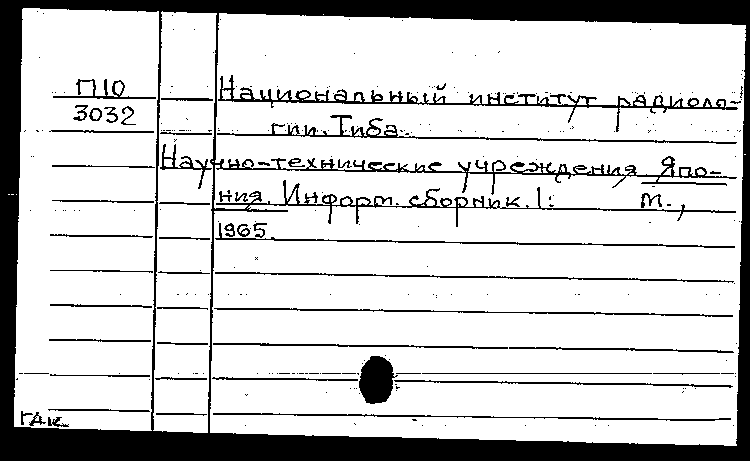 П10
3032
Национальный институт радиоло-
гии. Тиба.
Научно-технические учреждения Япо-
ния. Информ. сборник. 1: М.,
1965.
ГАК